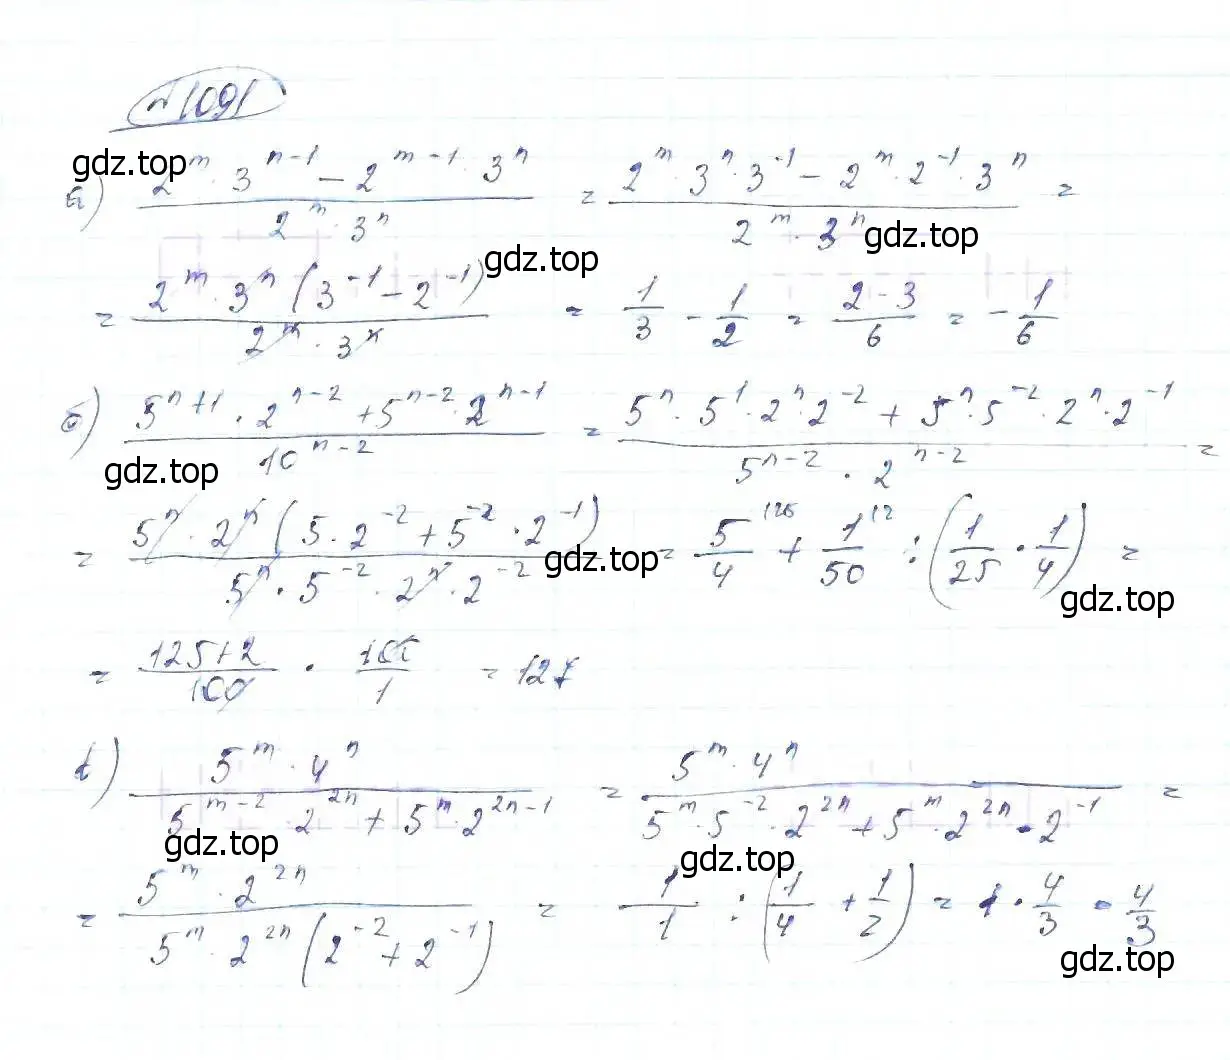 № 1091
gdz.top
а) (2^m · 3^(n-1) - 2^(m-1) · 3^n) / (2^m · 3^n) = (2^m · 3^n · 3^(-1) - 2^m · 2^(-1) · 3^n) / (2^m · 3^n) =
gdz.top gdz.top
= (2^m · 3^n (3^(-1) - 2^(-1))) / (2^m · 3^n) = 1/3 - 1/2 = (2-3)/6 = - 1/6
б) (5^(n+1) · 2^(n-2) + 5^(n-2) · 2^(n-1)) / 10^(n-2) = (5^n · 5^1 · 2^n · 2^(-2) + 5^n · 5^(-2) · 2^n · 2^(-1)) / (5^(n-2) · 2^(n-2)) =
gdz.top
= (5^n · 2^n (5 · 2^(-2) + 5^(-2) · 2^(-1))) / (5^n · 5^(-2) · 2^n · 2^(-2)) = 5/4 + 1/50 : (1/25 · 1/4) =
gdz.top gdz.top
= (125+2)/100 · 100/1 = 127
в) (5^m · 4^n) / (5^(m-2) · 2^(2n) + 5^m · 2^(2n-1)) = (5^m · 4^n) / (5^m · 5^(-2) · 2^(2n) + 5^m · 2^(2n) · 2^(-1)) =
gdz.top gdz.top
= (5^m · 2^(2n)) / (5^m · 2^(2n) (2^(-2) + 2^(-1))) = 1/1 : (1/4 + 1/2) = 1 · 4/3 = 4/3
gdz.top